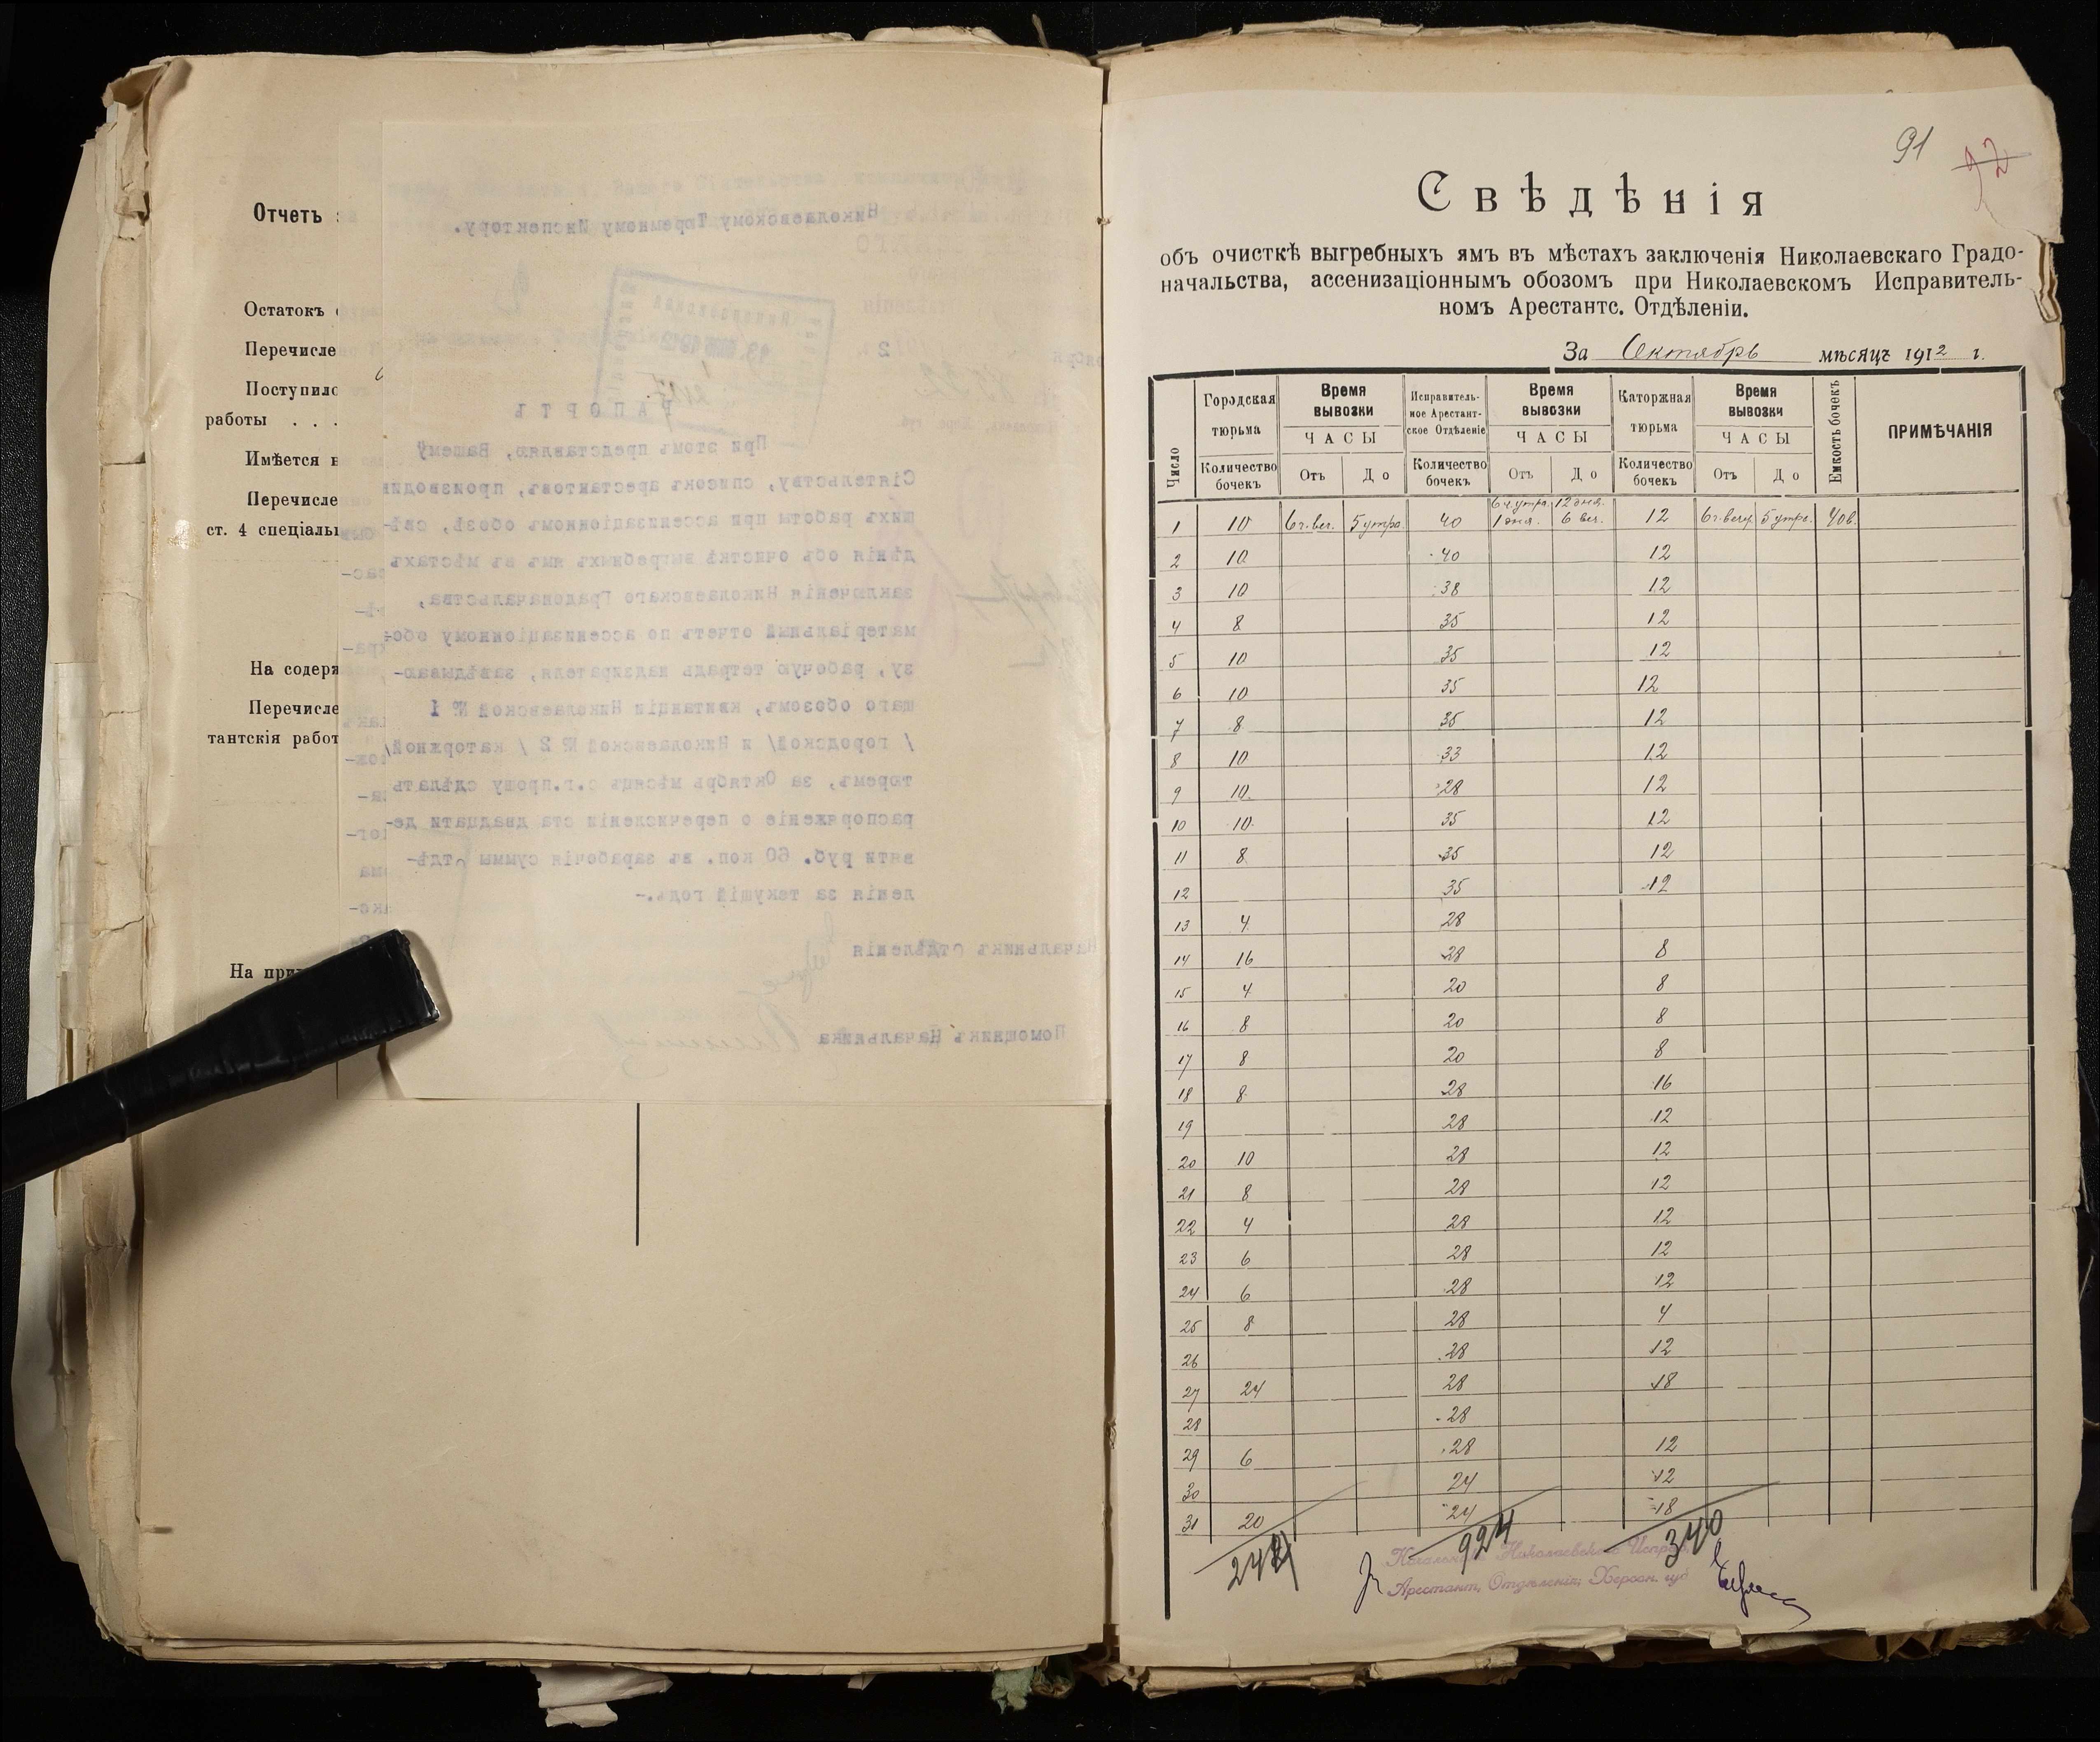 Отчетъ
Остатокъ
Перечисле
Поступило
работы . . .
Имѣется в
Перечисле
ст. 4 спеціаль
На содерж
Перечисле
тантскія работ
На при
Николаевскому Тюремному Инспектору.
РАПОРТЪ
При этомъ представляю, Вашему
Сіятельству, списокъ арестантовъ, производив
шихъ работы при ассенизаціонномъ обозѣ, свѣ-
дѣнія объ очисткѣ выгребныхъ ямъ въ мѣстахъ
заключенія Николаевскаго Градоначальства,
матеріальный отчетъ по ассенизаціонному обо-
зу, рабочую тетрадь надзирателя, завѣдываю-
щаго обозомъ, квитанціи Николаевской № 1
/ городской/ и Николаевской № 2 / каторжной/
тюремъ, за Октябрь мѣсяцъ с.г. прошу сдѣлать
распоряженіе о перечисленіи ста двадцати де-
вяти руб. 60 коп. въ заработнія суммы отдѣ-
ленія за текущій годъ.-
Начальникъ отдѣленія
Помощникъ Начальника
91
92
Свѣдѣнія
объ очисткѣ выгребныхъ ямъ въ мѣстахъ заключенія Николаевскаго Градо-
начальства, ассенизаціоннымъ обозомъ при Николаевскомъ Исправитель-
номъ Арестантс. Отдѣленіи.
За Октябрь мѣсяцъ 1912 г.
Число Городская тюрьма Время вывозки Исправительное Арестантское Отдѣленіе Время вывозки Каторжная тюрьма Время вывозки Емкость бочекъ ПРИМѢЧАНІЯ
ЧАСЫ ЧАСЫ ЧАСЫ
Количество бочекъ Отъ До Количество бочекъ Отъ До Количество бочекъ Отъ До
6 ч. утра. 12 дня.
1 10 6 ч. веч. 5 утра. 40 1 дня. 6 веч. 12 6 ч. вечер 5 утра. 40 в.
2 10 40 12
3 10 38 12
4 8 35 12
5 10 35 12
6 10 35 12
7 8 35 12
8 10 33 12
9 10 28 12
10 10 35 12
11 8 35 12
12 35 12
13 4 28
14 16 28 8
15 4 20 8
16 8 20 8
17 8 20 8
18 8 28 16
19 28 12
20 10 28 12
21 8 28 12
22 4 28 12
23 6 28 12
24 6 28 12
25 8 28 4
26 28 12
27 24 28 18
28 28
29 6 28 12
30 24 12
31 20 24 18
924 340
Начальникъ Николаевскаго Исправ.
Арестант. Отдѣленія, Херсон. губ